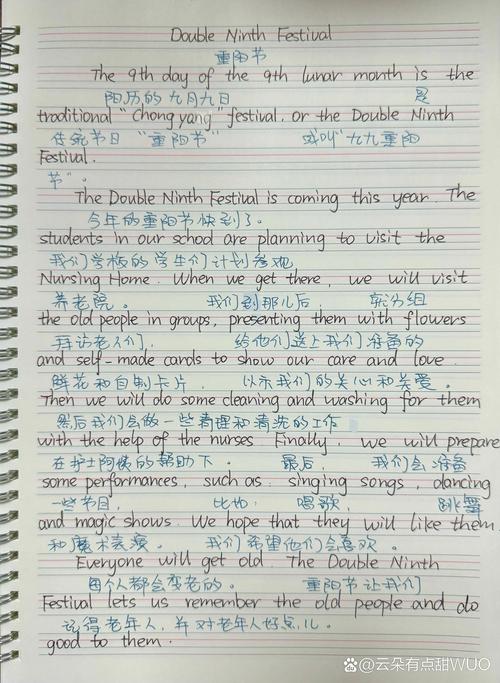 Double Ninth Festival
重阳节
The 9th day of the 9th lunar month is the
阳历的九月九日 是
traditional "Chong yang" festival, or the Double Ninth
传统节日 "重阳节" 或叫"九九重阳
Festival.
节"。
The Double Ninth Festival is coming this year. The
今年的重阳节快到了。
students in our school are planning to visit the
我们学校的学生们计划参观
Nursing Home. When we get there, we will visit
养老院。 我们到那儿后, 就分组
the old people in groups, presenting them with flowers
拜访老人们, 给他们送上我们准备的
and self-made cards to show our care and love.
鲜花和自制卡片, 以示我们的关心和关爱。
Then we will do some cleaning and washing for them
然后我们会做一些清理和清洗的工作
with the help of the nurses. Finally, we will prepare
在护士阿姨的帮助下。 最后, 我们会准备
some performances, such as: singing songs, dancing
一些节目, 比如: 唱歌, 跳舞
and magic shows. We hope that they will like them.
和魔术表演。 我们希望他们会喜欢。
Everyone will get old. The Double Ninth
每个人都会变老的。 重阳节让我们
Festival lets us remember the old people and do
记得老年人, 并对老年人好点儿。
good to them.
@云朵有点甜WUO